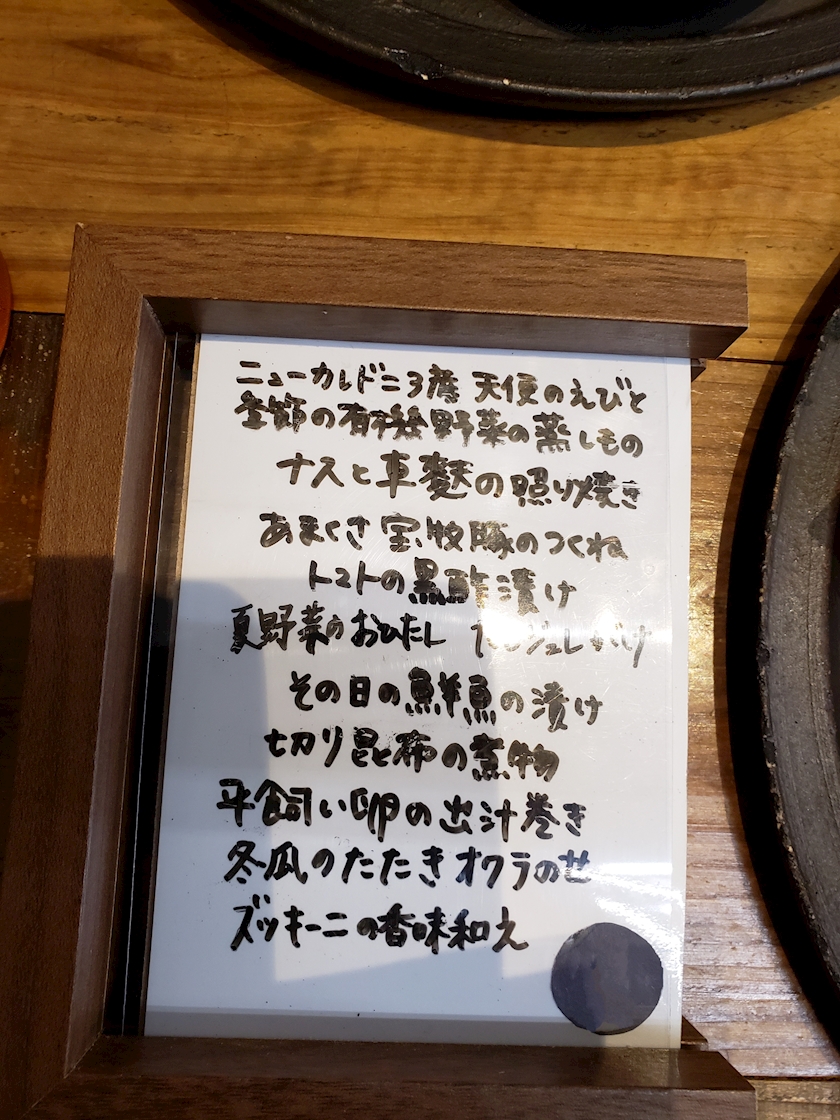 ニューカレドニア産 天使のえびと
季節の有機野菜の蒸しもの
ナスと車麩の照り焼き
あまくさ宝牧豚のつくね
トマトの黒酢漬け
夏野菜のおひたし ジュレがけ
その日の鮮魚の漬け
切り昆布の煮物
平飼い卵の出汁巻き
冬瓜のたたきオクラのせ
ズッキーニの香味和え